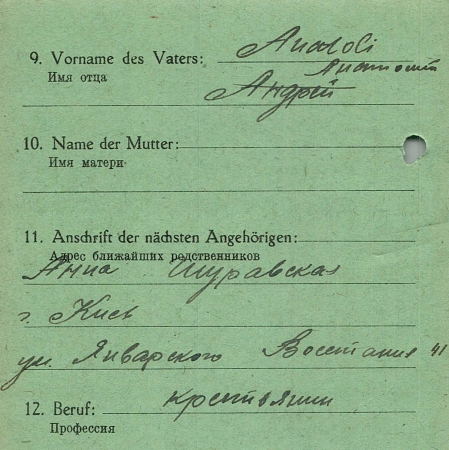 9. Vorname des Vaters: Anatoli
Имя отца Анатолий
Андрей
10. Name der Mutter:
Имя матери
11. Anschrift der nächsten Angehörigen:
Адрес ближайших родственников
Анна Журавская
г. Киев
ул. Январского Восстания 41
12. Beruf: крестьянин
Профессия